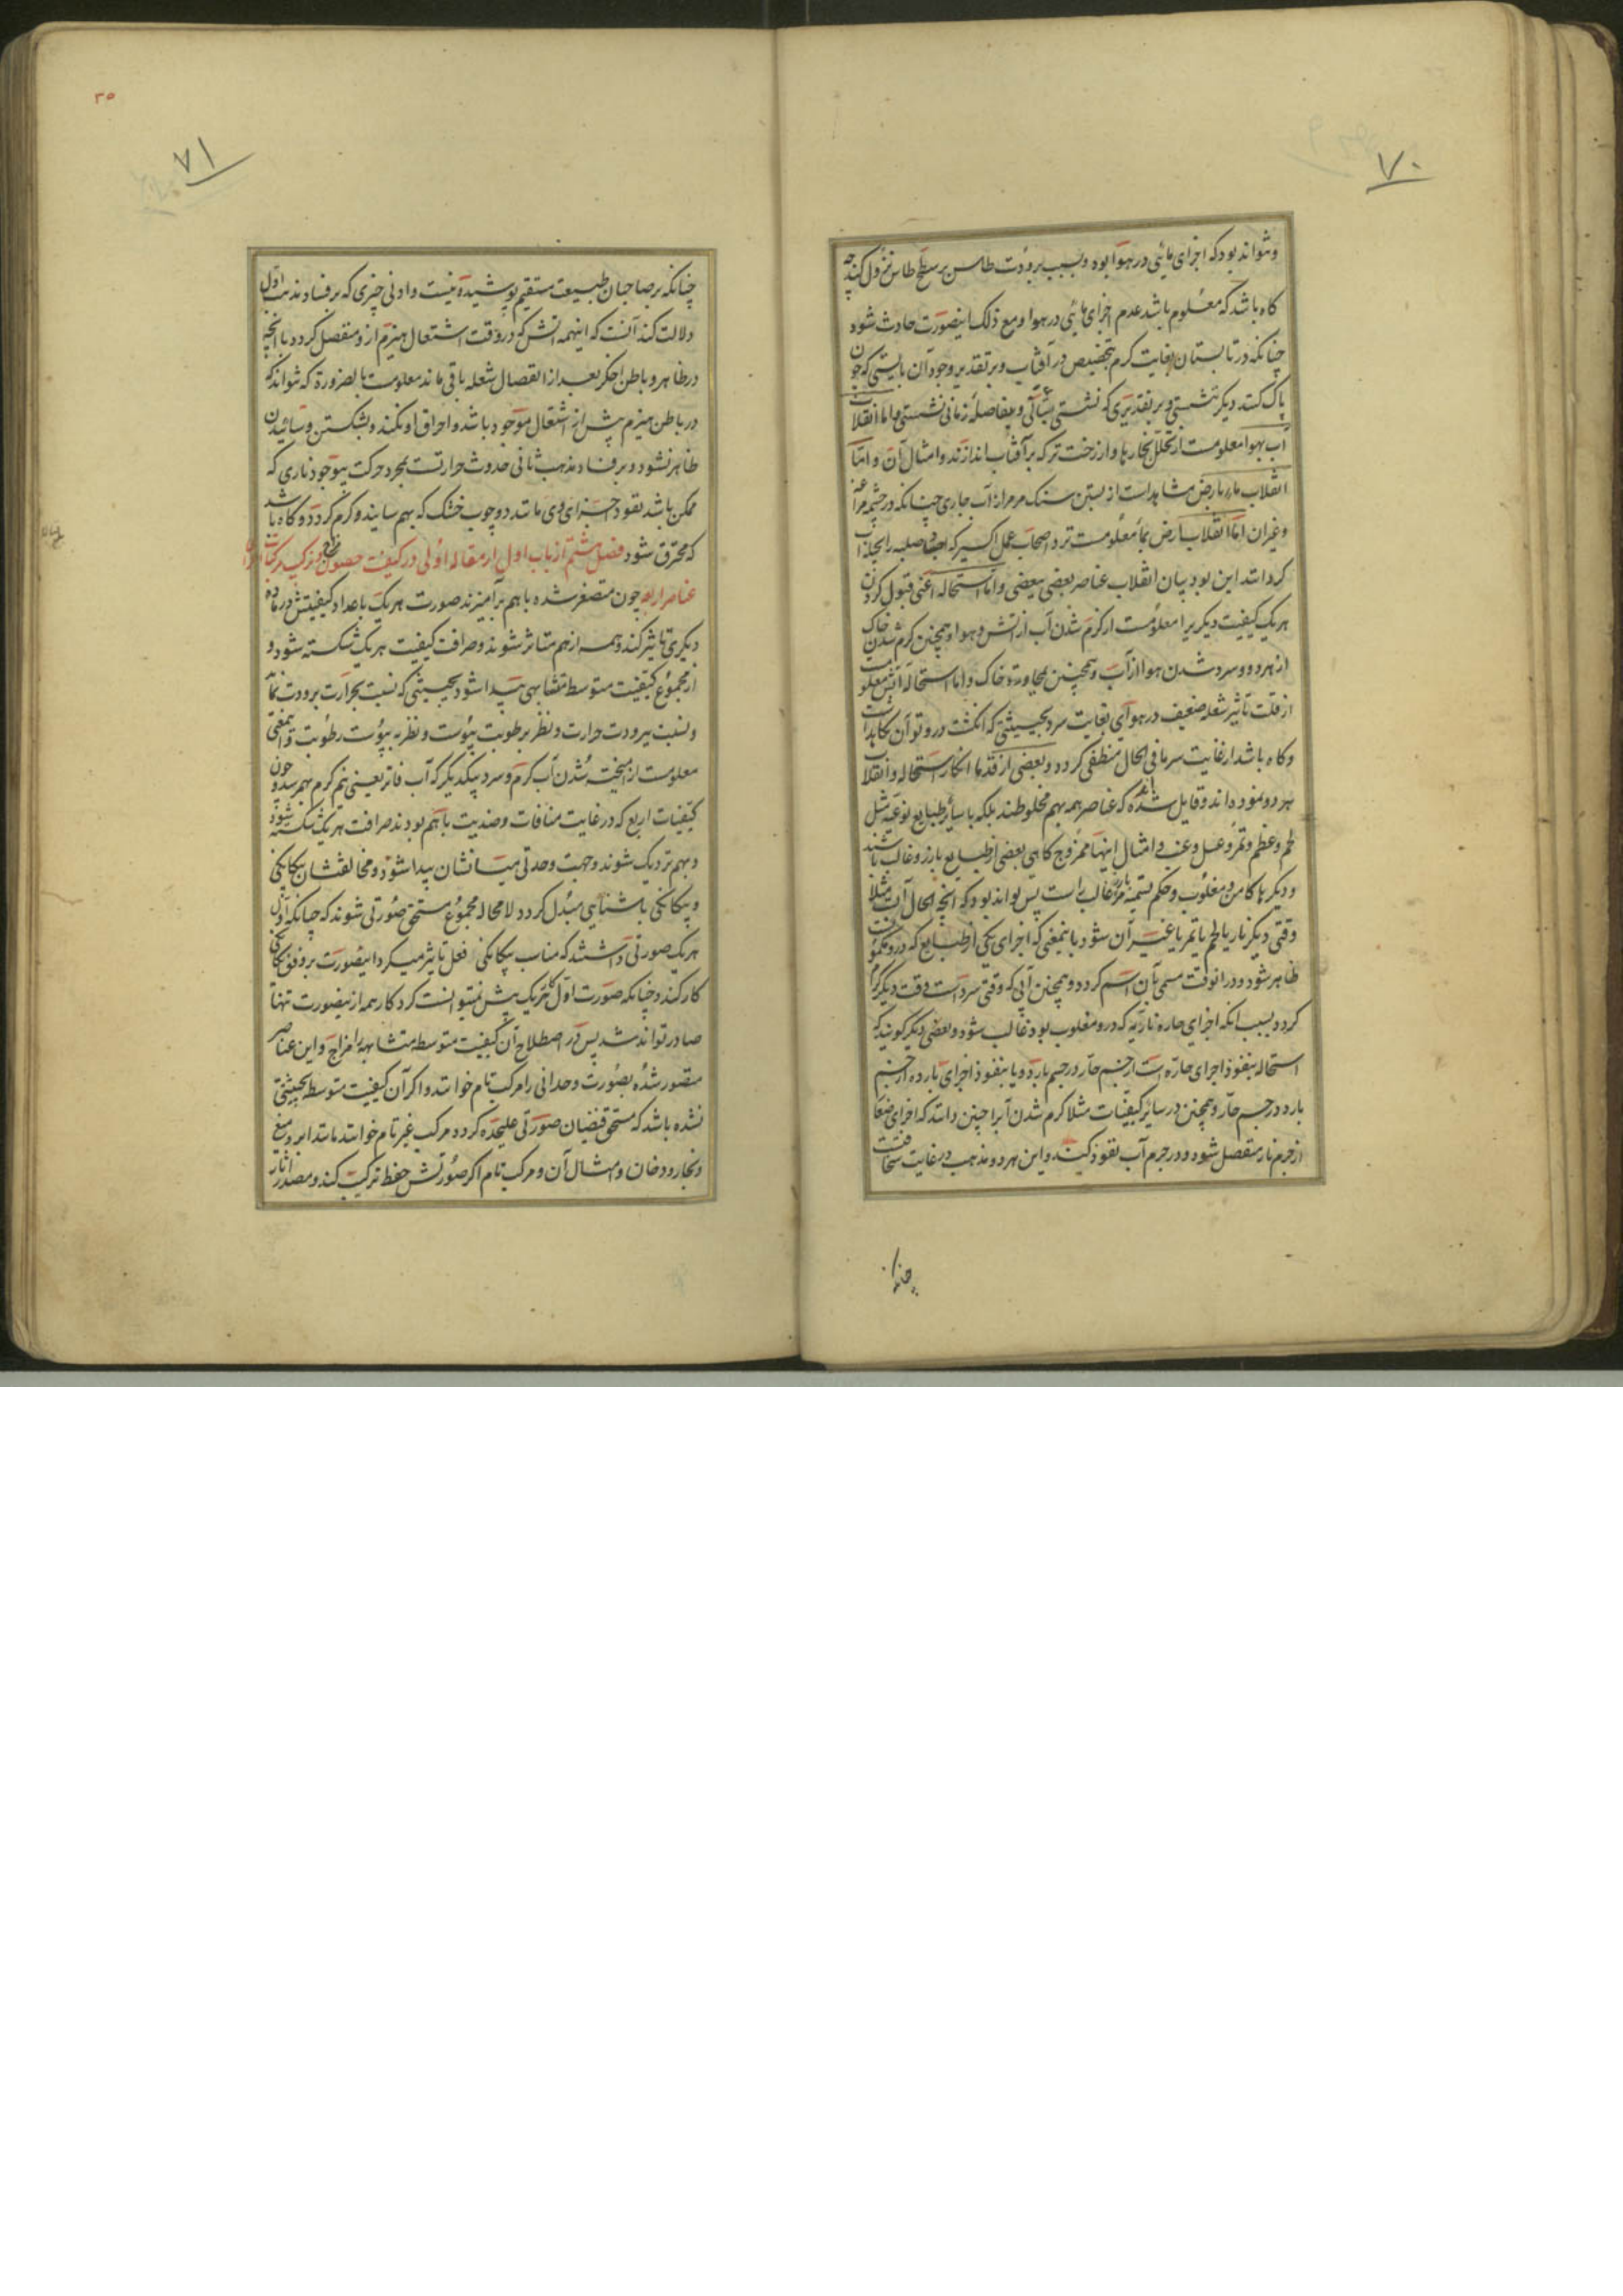 ۷۰
ونتواند بود که اجزای مائی در هوا بوده و بسبب برودت طاس بر سطح طاس نزول کند چه
کاه باشد که معلوم باشد عدم اجزای مائی در هوا و مع ذلک اینصورت حادث شود
چنانکه در تابستان بغایت کرم بتخصیص در آفتاب و بر تقدیر وجود آن بایستی که چون
پاک کنند دیکر ننشستی و بر تقدیری که نشستی بتأنی و بفاصلهٔ زمانی نشستی و اما انقلاب
آب بهوا معلومست از تحلل بخارها و از رخت تر که بر آفتاب اندازند و امثال آن و امّا
انقلاب ماء بارض مشاهد است از بستن سنک مرمر از آب جاری چنانکه در چشمه مراغه
و غیر آن امّا انقلاب ارض بماء معلومست نزد اصحاب عمل اکسیر که اجساد صلبه را بحیله آب
کردانند این بود بیان انقلاب عناصر بعضی ببعضی و امّا استحاله اعنی قبول کردن
هر یک کیفیت دیکریرا معلومست از کرم شدن آب از آتش و هوا و همچنین کرم شدن خاک
از هر دو و سرد شدن هوا از آب و همچنین بمجاورت خاک و اما استحاله آتش معلومست
از قلت تأثیر شعله ضعیف در هوای بغایت سرد بحیثیتی که انکشت در و توان نکاهداشت
و کاه باشد از غایت سرما فی الحال منطفی کردد و بعضی از قدما انکار استحاله و انقلاب
هر دو نموده اند و قایل شده که عناصر همه بهم مخلوطند بلکه با سایر طبایع نوعیه مثل
لحم و عظم و تمر و عسل و عنب و امثال اینها ممزوج کاهی بعضی از طبایع بارز و غالب باشند
و دیکرها کامن و مغلوب و حکم تسمیه مر غالب راست پس تواند بود که آنچه الحال آبست مثلا
وقتی دیکر نار یا لحم یا تمر یا غیر آن شود باینمعنی که اجزای یکی از طبایع که درو مکنونست
ظاهر شود و در آنوقت مسمی بآن اسم کردد و همچنین آبی که وقتی سرد است وقت دیکر کرم
کردد بسبب آنکه اجزای حاره ناریه که درو مغلوب بود غالب شود و بعضی دیکر کویند که
استحاله بنفوذ اجزای حاره است از جسم حار در جسم بارد و یا بنفوذ اجزای بارده از جسم
بارد در جسم حار و همچنین در سایر کیفیات مثلا کرم شدن آب را چنین دانند که اجزای صغار
از جرم نار منفصل شود و در جرم آب نفوذ کند و این هر دو مذهب در غایت سخافتست
چنانکه
۳۵
۷۱
چنانکه بر صاحبان طبیعت مستقیم پوشیده نیست و ادنی چیزی که بر فساد مذهب اول
دلالت کند آنست که اینهمه آتش که در وقت اشتعال هیزم ازو منفصل کردد با آنچه
در ظاهر و باطن اخکر بعد از انفصال شعله باقی ماند معلومست بالضروره که نتواند که
در باطن هیزم پیش از اشتعال موجود باشد و احراق او نکند و بشکستن و سائیدن
ظاهر نشود و بر فساد مذهب ثانی حدوث حرارتست بمجرد حرکت بیوجود ناری که
ممکن باشد نفوذ اجزای وی مانند دو چوب خشک که بهم سایند و کرم کردد و کاه باشد
که محترق شود فصل هشتم از باب اول از مقاله اولی در کیفیت حصول مزاج و ترکیب مرکبات
عناصر اربعه چون متصغر شده با هم برآمیزند صورت هر یک باعداد کیفیتش در ماده
دیکری تاثیر کند و همه از هم متاثر شوند و صرافت کیفیت هر یک شکسته شود و
از مجموع کیفیت متوسط متشابهی پیدا شود بحیثیتی که نسبت بحرارت برودت نماید
و نسبت ببرودت حرارت و نظر برطوبت یبوست و نظر به یبوست رطوبت و اینمعنی
معلومست از آمیخته شدن آب کرم و سرد بیکدیکر که آب فاتر یعنی نیم کرم بهم رسد و چون
کیفیات اربع که در غایت منافات و ضدیت باهم بودند صرافت هر یک شکسته شود
و بهم نزدیک شوند و جهت وحدتی میانشان پیدا شود و مخالفتشان بیکانکی
و بیکانکی باشنایی مبدل کردد لا محاله مجموع مستحق صورتی شوند که چنانکه اول
هر یک صورتی داشتند که مناسب بیکانکی فعل تاثیر میکرد اینصورت بر وفق یکانکی
کار کند و چنانکه صورت اول کار یک بیش نمیتوانست کرد کار همه از ینصورت تنها
صادر تواند شد پس در اصطلاح آن کیفیت متوسط متشابهه را مزاج و این عناصر
متصور شده بصورت وحدانی را مرکب تام خوانند و اکر آن کیفیت متوسط بحیثیتی
نشده باشد که مستحق فیضان صورتی علیحده کردد مرکب غیر تام خوانند مانند ابر و میغ
و بخار و دخان و امثال آن و مرکب تام اکر صورتش حفظ ترکیب کند و مصدر آثار